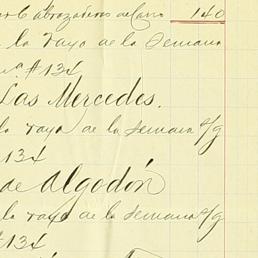 6 abrazaderas de Carro 140
la raya de la Semana
#134
Las Mercedes.
la raya de la Semana s/g
134
de Algodón
la raya de la Semana s/g
#134